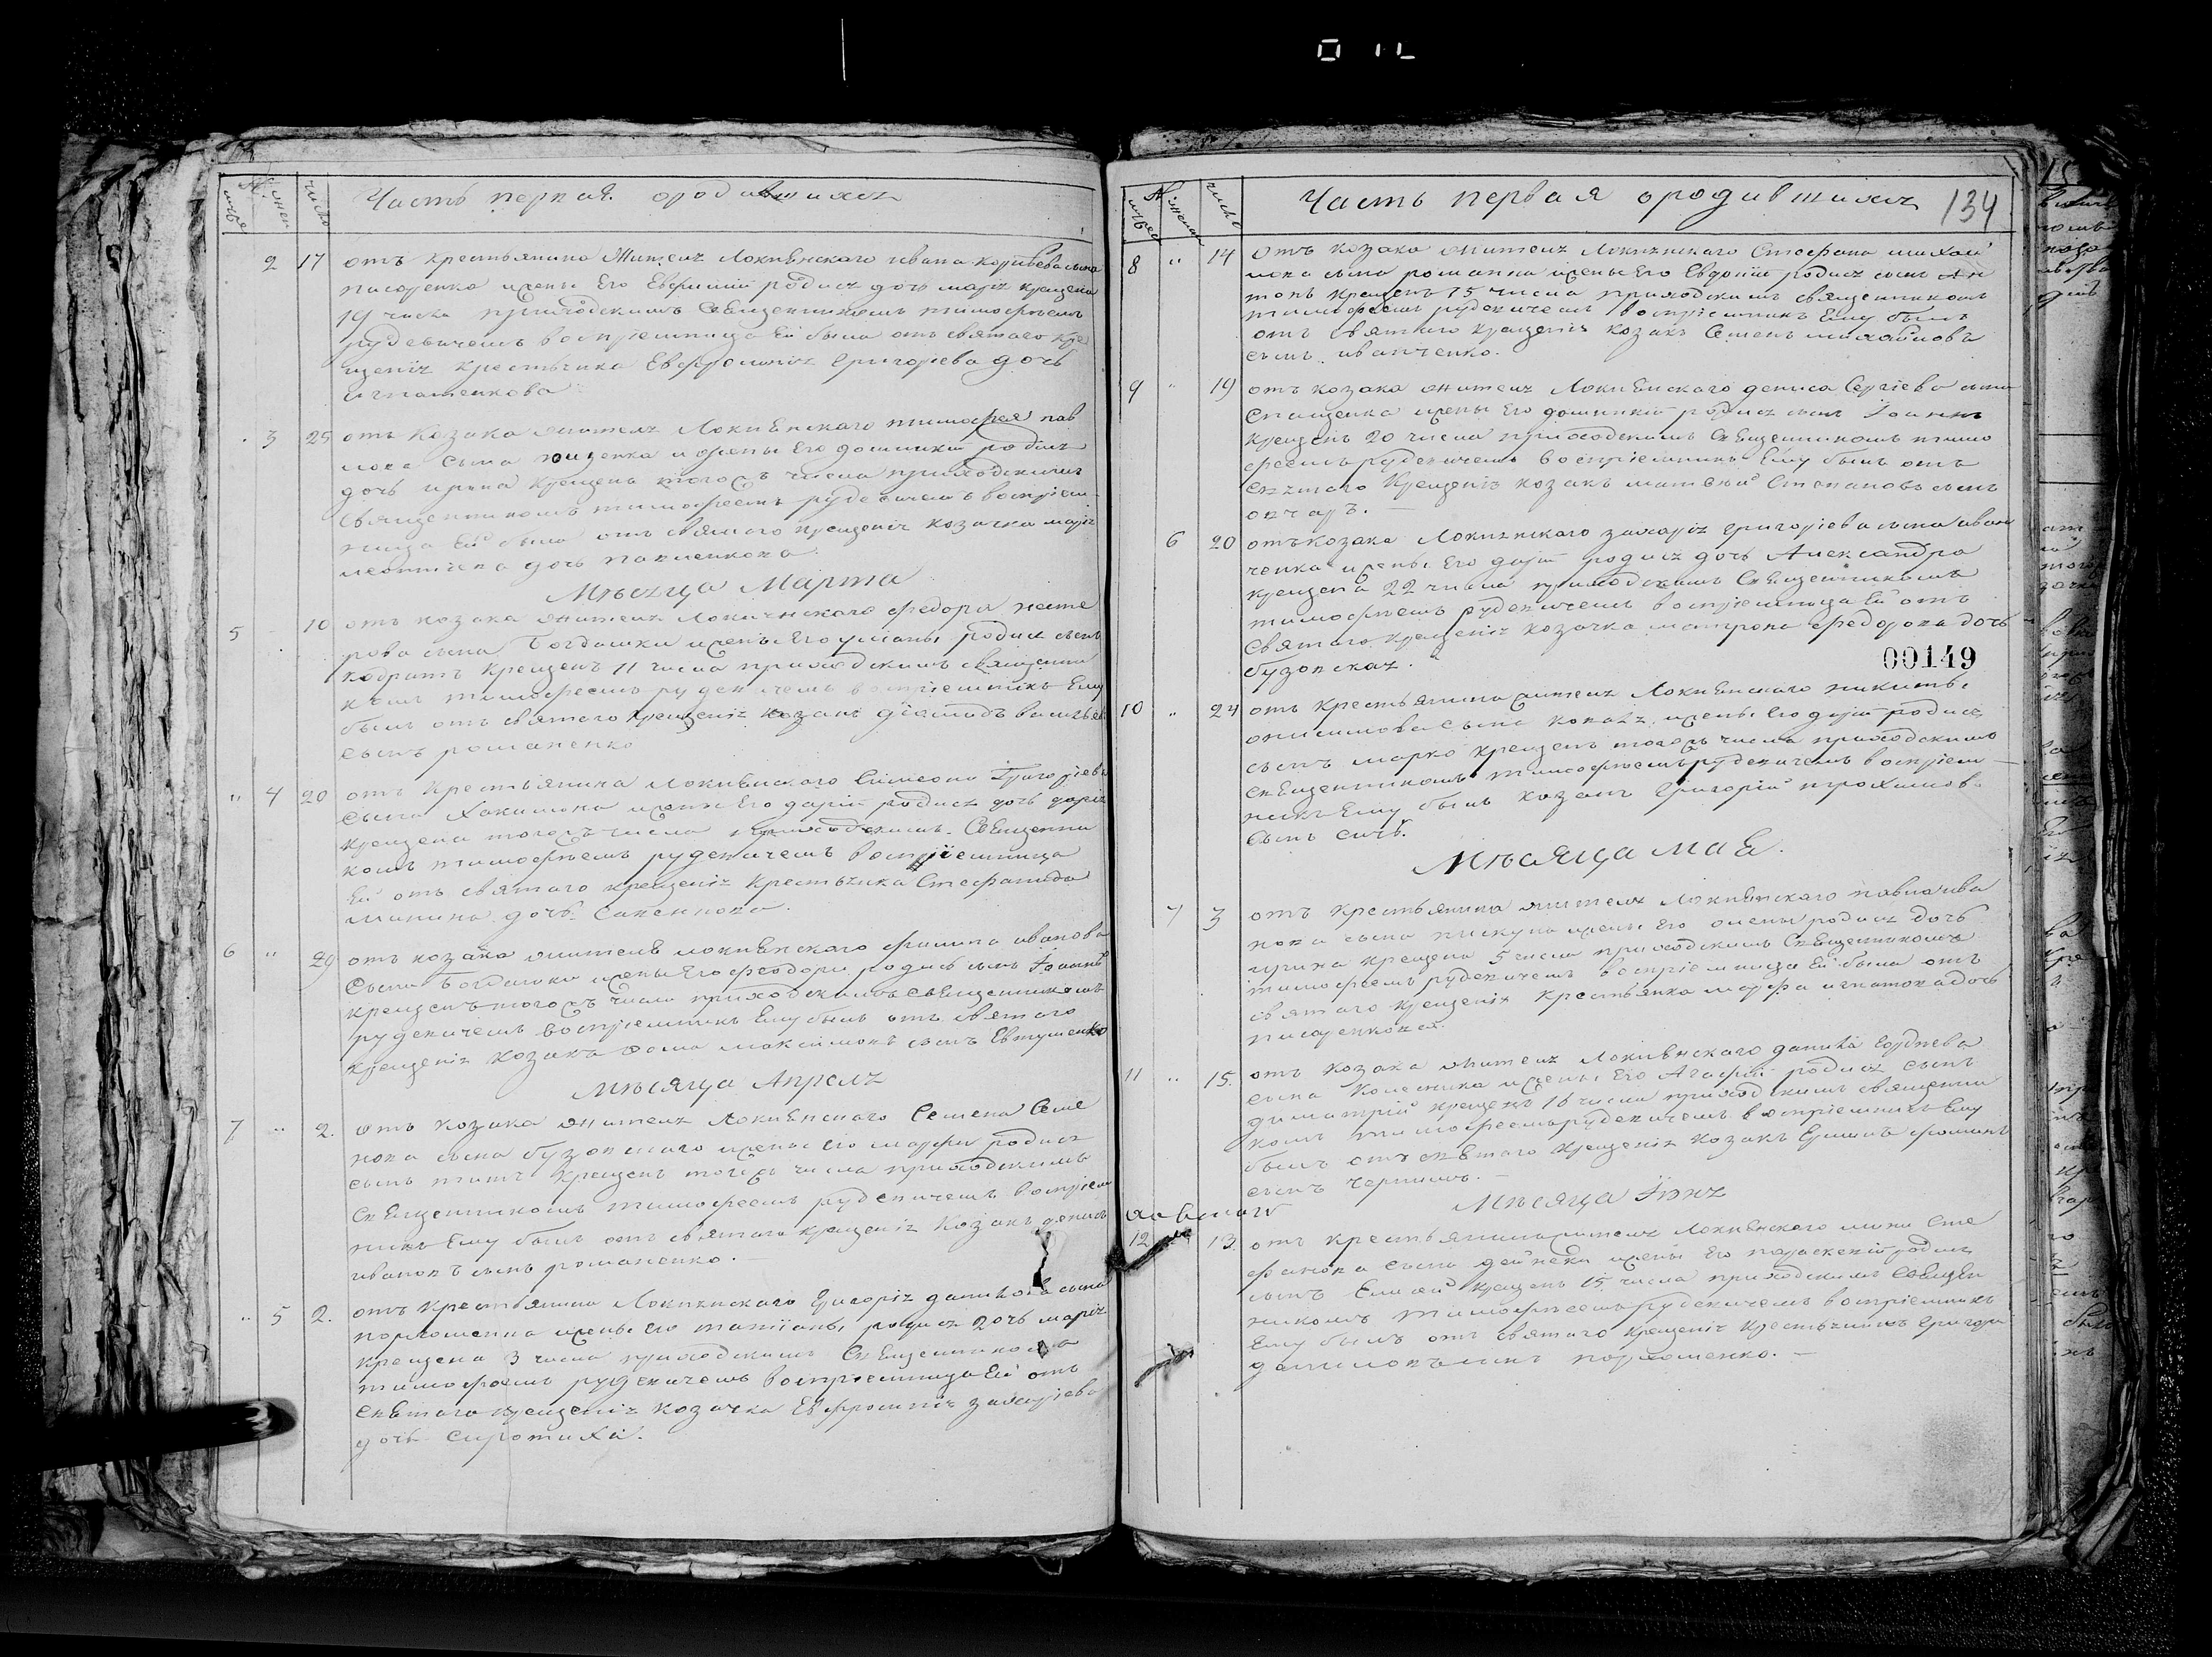 Часть первая ородившихся
2 17 отъ крестьянина жителя Локнѣнского ивана
писаренка жены Его Евфимии родися дочь марія крещена
19 числа приходскимъ Священникомъ тимофеемъ
рудевичемъ воспріемница Ей была отъ святаго кре
щенія крестьянка Евфросинія Григоріева дочь
игнатенкова
3 25 отъ козака жителя Локнѣнского тимофея пав
лова сына ющенка и жены Его домникіи родися
дочь ирина крещена тогожъ числа приходскимъ
Священникомъ тимофеемъ рудевичемъ воспріем
ница Ей была отъ святаго крещенія козачка марія
леонтіева дочь павленкова
Мѣсяца Марта
5 10 отъ козака жителя Локнянского федора несте
рова сына Богдашки жены Его улианы родися сынъ
кодратъ крещенъ 11 числа приходскимъ священни
комъ тимофеемъ рудевичемъ воспріемникъ Ему
былъ отъ святаго крещенія козакъ
сынъ романенко
" 4 20 отъ крестьянина Локнѣнского Симеона Григоріева
сына Хакимова жены Его даріи родися дочь дарія
крещена тогожъ числа приходскимъ Священни
комъ тимофеемъ рудевичемъ воспріемница
Ей отъ святаго крещенія крестьянка Стефанида
минина дочь
6 " 29 отъ козака жителя локнѣнского филипа иванова
сына Богдашки жены Его феодоры родися сынъ Іоаннъ
крещенъ тогожъ числа приходскимъ священникомъ
рудевичемъ воспріемникъ Ему былъ отъ святаго
крещенія козакъ фома максимовъ сынъ Евтушенко
Мѣсяца Апреля
7 " 2. отъ козака жителя Локнѣнского Семена Семе
нова сына бузовского жены Его марфы родися
сынъ титъ крещенъ тогожъ числа приходскимъ
Священникомъ тимофеемъ рудевичемъ воспріем
никъ Ему былъ отъ святаго крещенія козакъ денисъ
ивановъ сынъ романенко.
" 5 2. отъ крестьянина Локнянского Григорія данилова сына
пархоменка жены Его татіаны родися дочь марія
крещена 3 числа приходскимъ Священникомъ
тимофеемъ рудевичемъ воспріемница Ей отъ
святаго крещенія козачка Евфросинія захаріева
дочь сиротиха.
Часть первая ородившихся 134
8 " 14 отъ козака жителя Локнянского Стефана михай
лова сына романка жены Его Евдокіи родися сынъ Ан
тонъ крещенъ 15 числа приходскимъ священникомъ
тимофеемъ рудевичемъ воспріемникъ Ему былъ
отъ святаго крещенія козакъ Семенъ михайловъ
сынъ иванченко.
9 " 19 отъ козака жителя Локнѣнского дениса Сергіева сына
жены Его домникіи родися сынъ Іоаннъ
крещенъ 20 числа приходскимъ Священникомъ тимо
феемъ рудевичемъ воспріемникъ Ему былъ отъ
святаго крещенія козакъ матвѣй Степановъ сынъ
овчаръ.
6 20 отъ козака Локнянского захарія Григоріева сына иван
ченка жены Его даріи родися дочь Александра
крещена 22 числа приходскимъ Священникомъ
тимофеемъ рудевичемъ воспріемница Ей отъ
Святаго крещенія козачка матрона федорова дочь
бузовская.
00149
10 " 24 отъ крестьянина жителя Локнѣнского никиты
онисимова сына коваля жены Его даріи родися
сынъ марко крещенъ тогожъ числа приходскимъ
Священникомъ тимофеемъ рудевичемъ воспріем
никъ Ему былъ козакъ Григорій трохимовъ
сынъ
Мѣсяца маѣ.
7 3 отъ крестьянина жителя Локнѣнского павла ива
нова сына пискуна жены Его олены родися дочь
ирина крещена 5 числа приходскимъ Священникомъ
тимофеемъ рудевичемъ воспріемница Ей была отъ
святаго крещенія крестьянка марфа игнатова дочь
писаренкова.
11 " 15. отъ козака жителя Локнѣнского данила
сына Колесника жены Его Агафіи родися сынъ
димитрій крещенъ 16 числа приходскимъ священни
комъ тимофеемъ рудевичемъ воспріемникъ Ему
былъ отъ святаго крещенія козакъ
сынъ
Мѣсяца Іюня
12 13. отъ крестьянина жителя Локнѣнского мины Сте
фанова сына дейнеки жены Его параскевіи родися
сынъ Елисей крещенъ 15 числа приходскимъ Священ
никомъ тимофеемъ рудевичемъ воспріемникъ
Ему былъ отъ святаго крещенія крестьянинъ Григорій
даниловъ сынъ пархоменко.